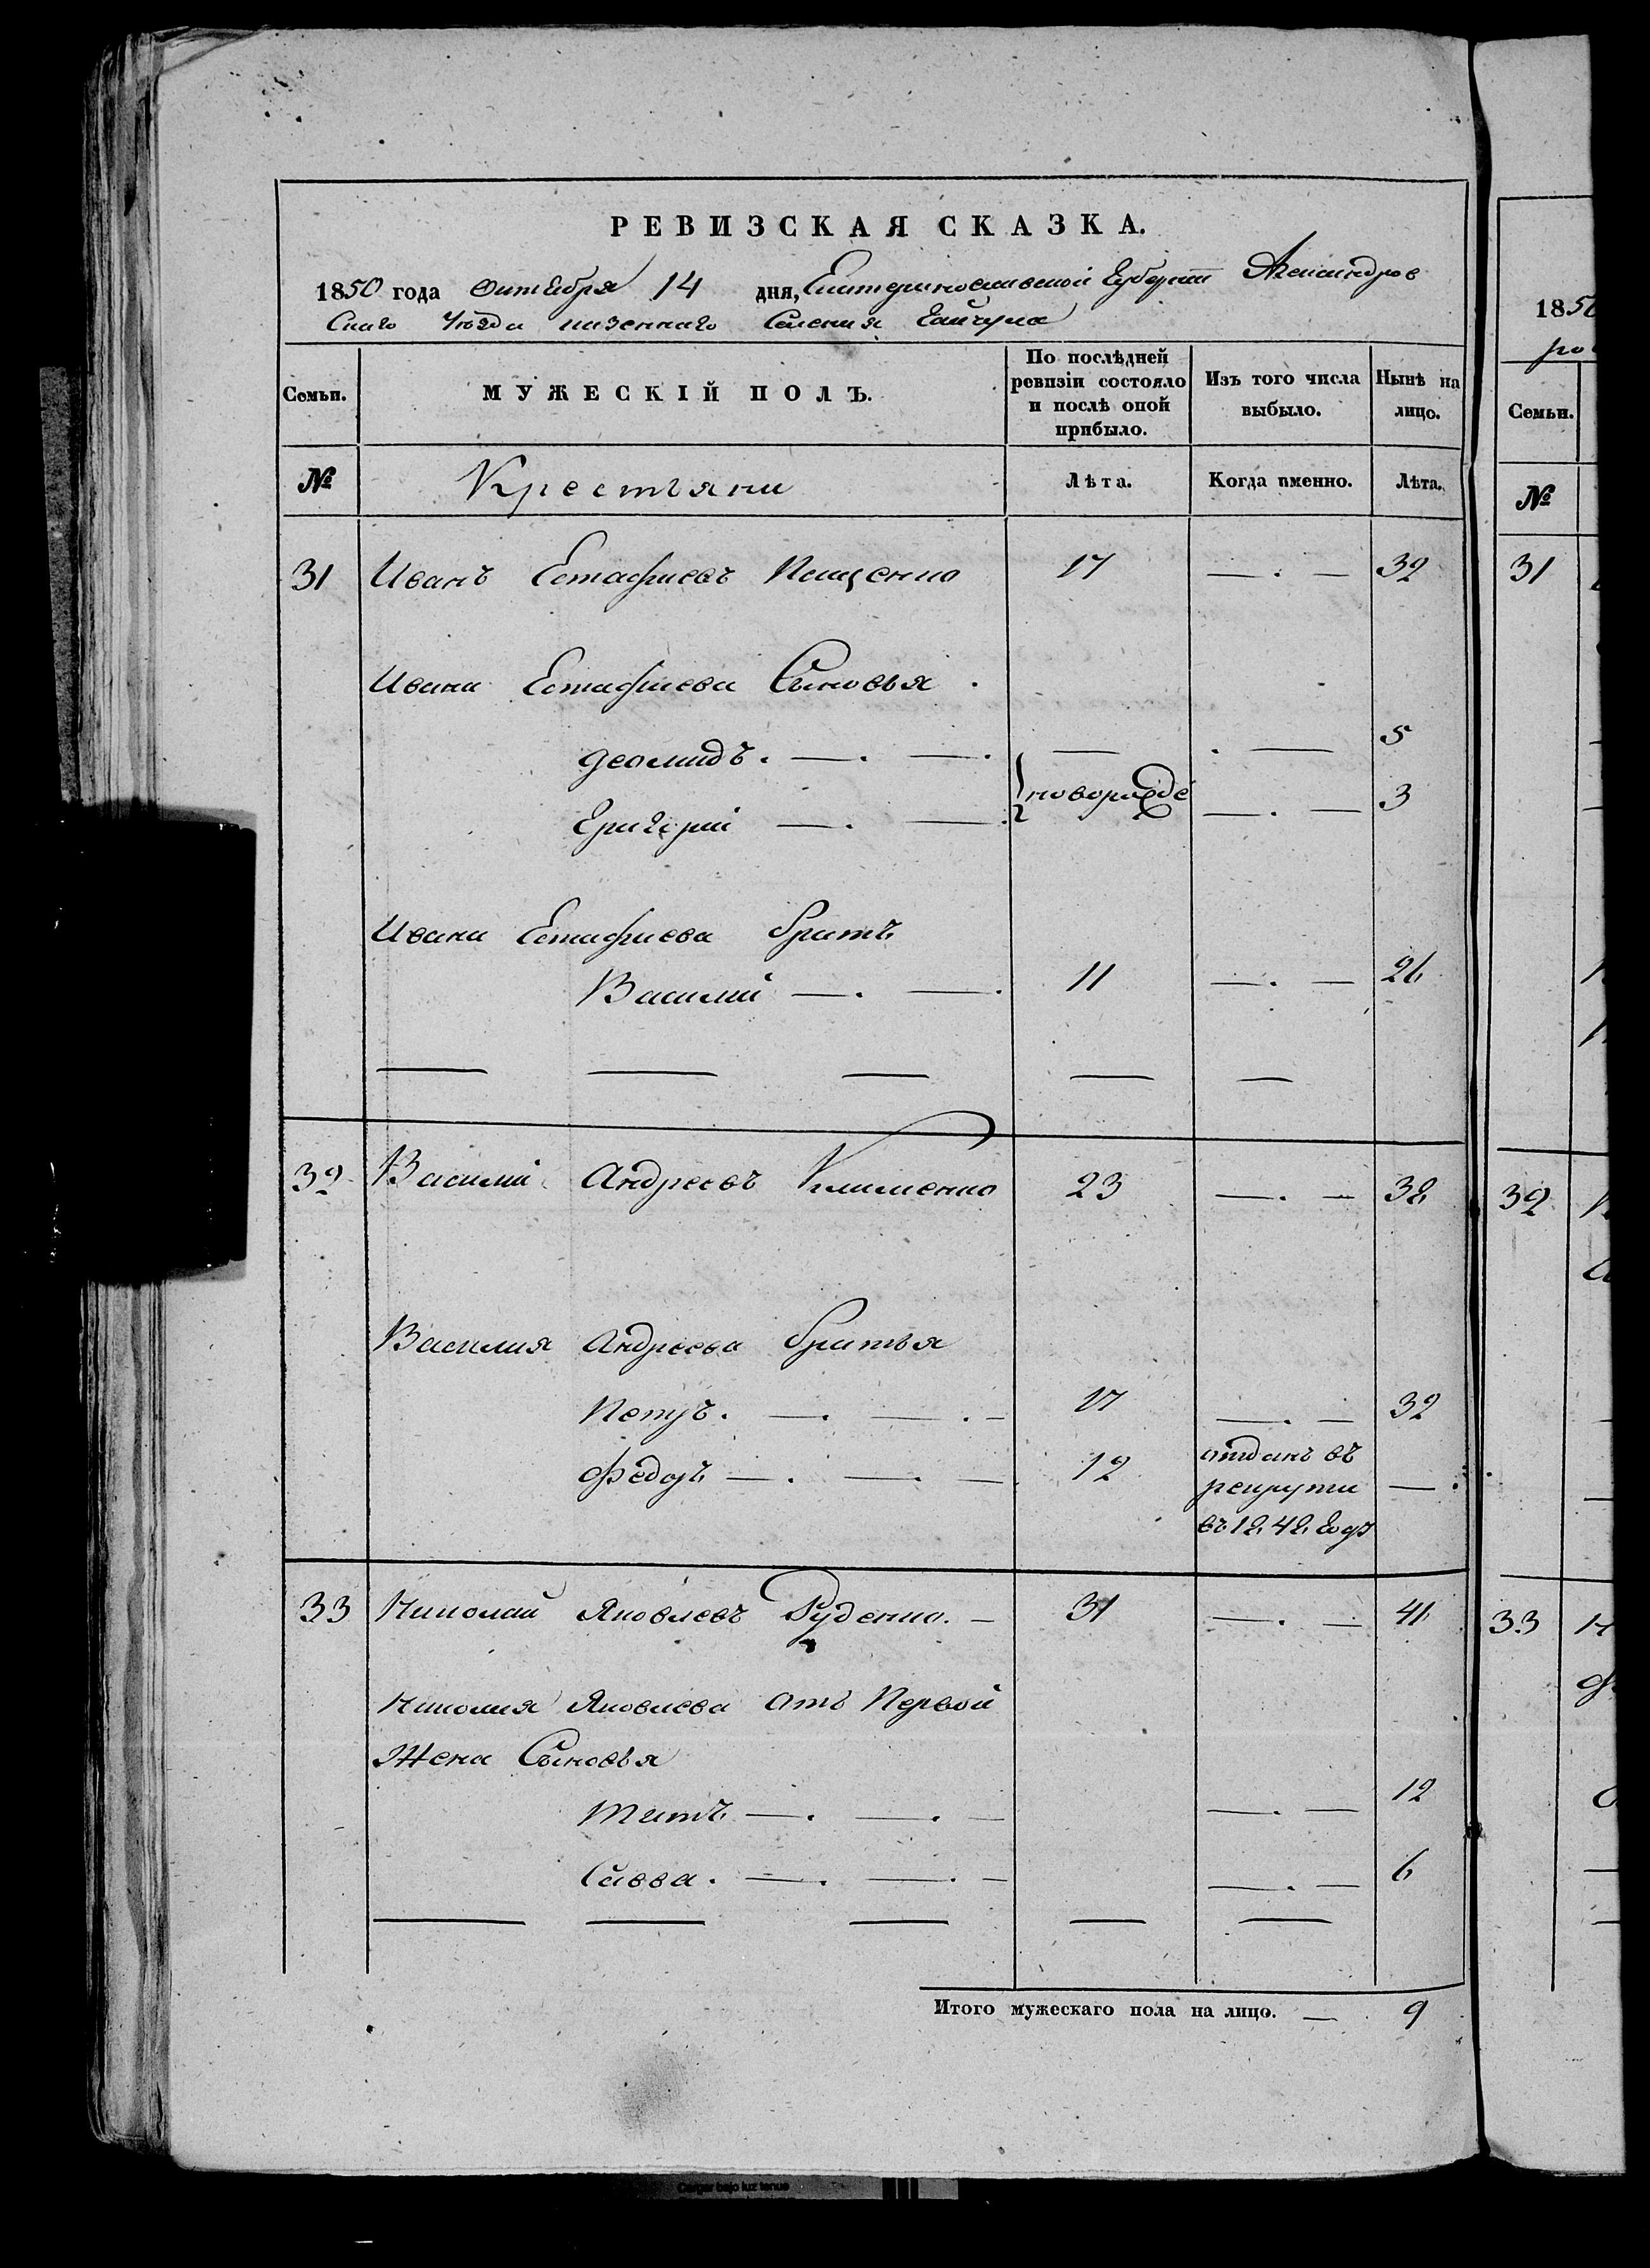 РЕВИЗСКАЯ СКАЗКА.
1850 года Октября 14 дня, Екатеринославской Губерніи Александров
Скаго Уезда казеннаго Селения Гайчула
Семьи. МУЖЕСКІЙ ПОЛЪ. По послѣдней ревизіи состояло и послѣ оной прибыло. Изъ того числа выбыло. Нынѣ на лицо.
№ Крестьяни Лѣта. Когда именно. Лѣта.
31 Иванъ Естафиевъ Пащенко 17 — . — 32
Ивана Естафиева Сыновья .
Деомидъ . — . — . — . — 5
Григорій — . — новорожде — . — 3
Ивана Естафиева братъ
Василий — . — . 11 — . — 26
32 Василий Андреевъ Клименко 23 — . — 38
Василия Андреева братья
Петръ . — . — . — 17 — . — 32
Федоръ — . — . — 12 отданъ въ
рекруты —
въ 1848 году
33 Николай Яковлевъ Руденко . — 31 — . — 46
Николая Яковлева отъ Первой
Жены Сыновья
Титъ — . — . — — . — 12
Савва . — . — . — — . — 6
Итого мужескаго пола на лицо. — 9
1850
Семьи.
№
31
32
33